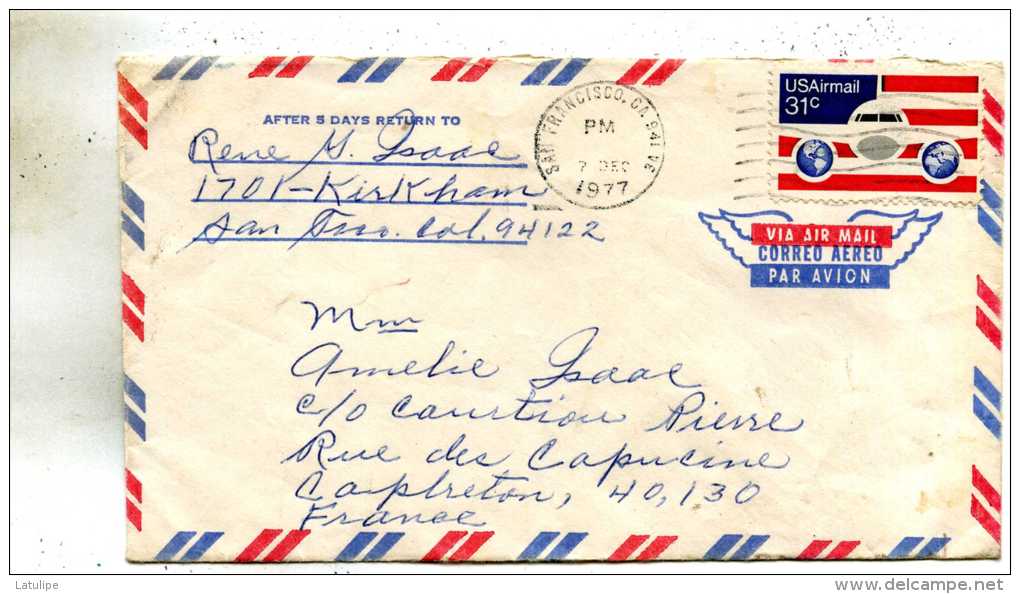 AFTER 5 DAYS RETURN TO
Rene G. Isaac
1701-Kirkham
San Fran. Cal. 94122
SAN FRANCISCO, CA. 941
PM
7 DEC
1977
USAirmail
31c
VIA AIR MAIL
CORREO AEREO
PAR AVION
Mm
Amelie Isaac
c/o Caurtion Pierre
Rue des Capucine
Capbreton, 40,130
France
Latulipe
www.delcampe.net